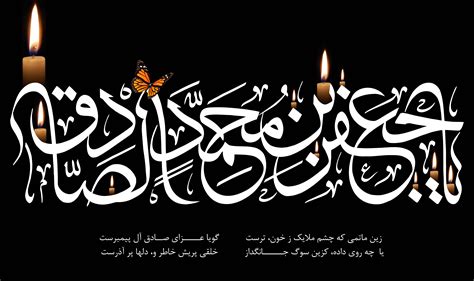 یا جعفر بن محمد الصادق
زین ماتمی که چشم ملایک ز خون، ترست گویا عزای صادق آل پیمبرست
یا چه روی داده، کزین سوگ جانگداز خلقی پریش خاطر و، دلها پر آذرست